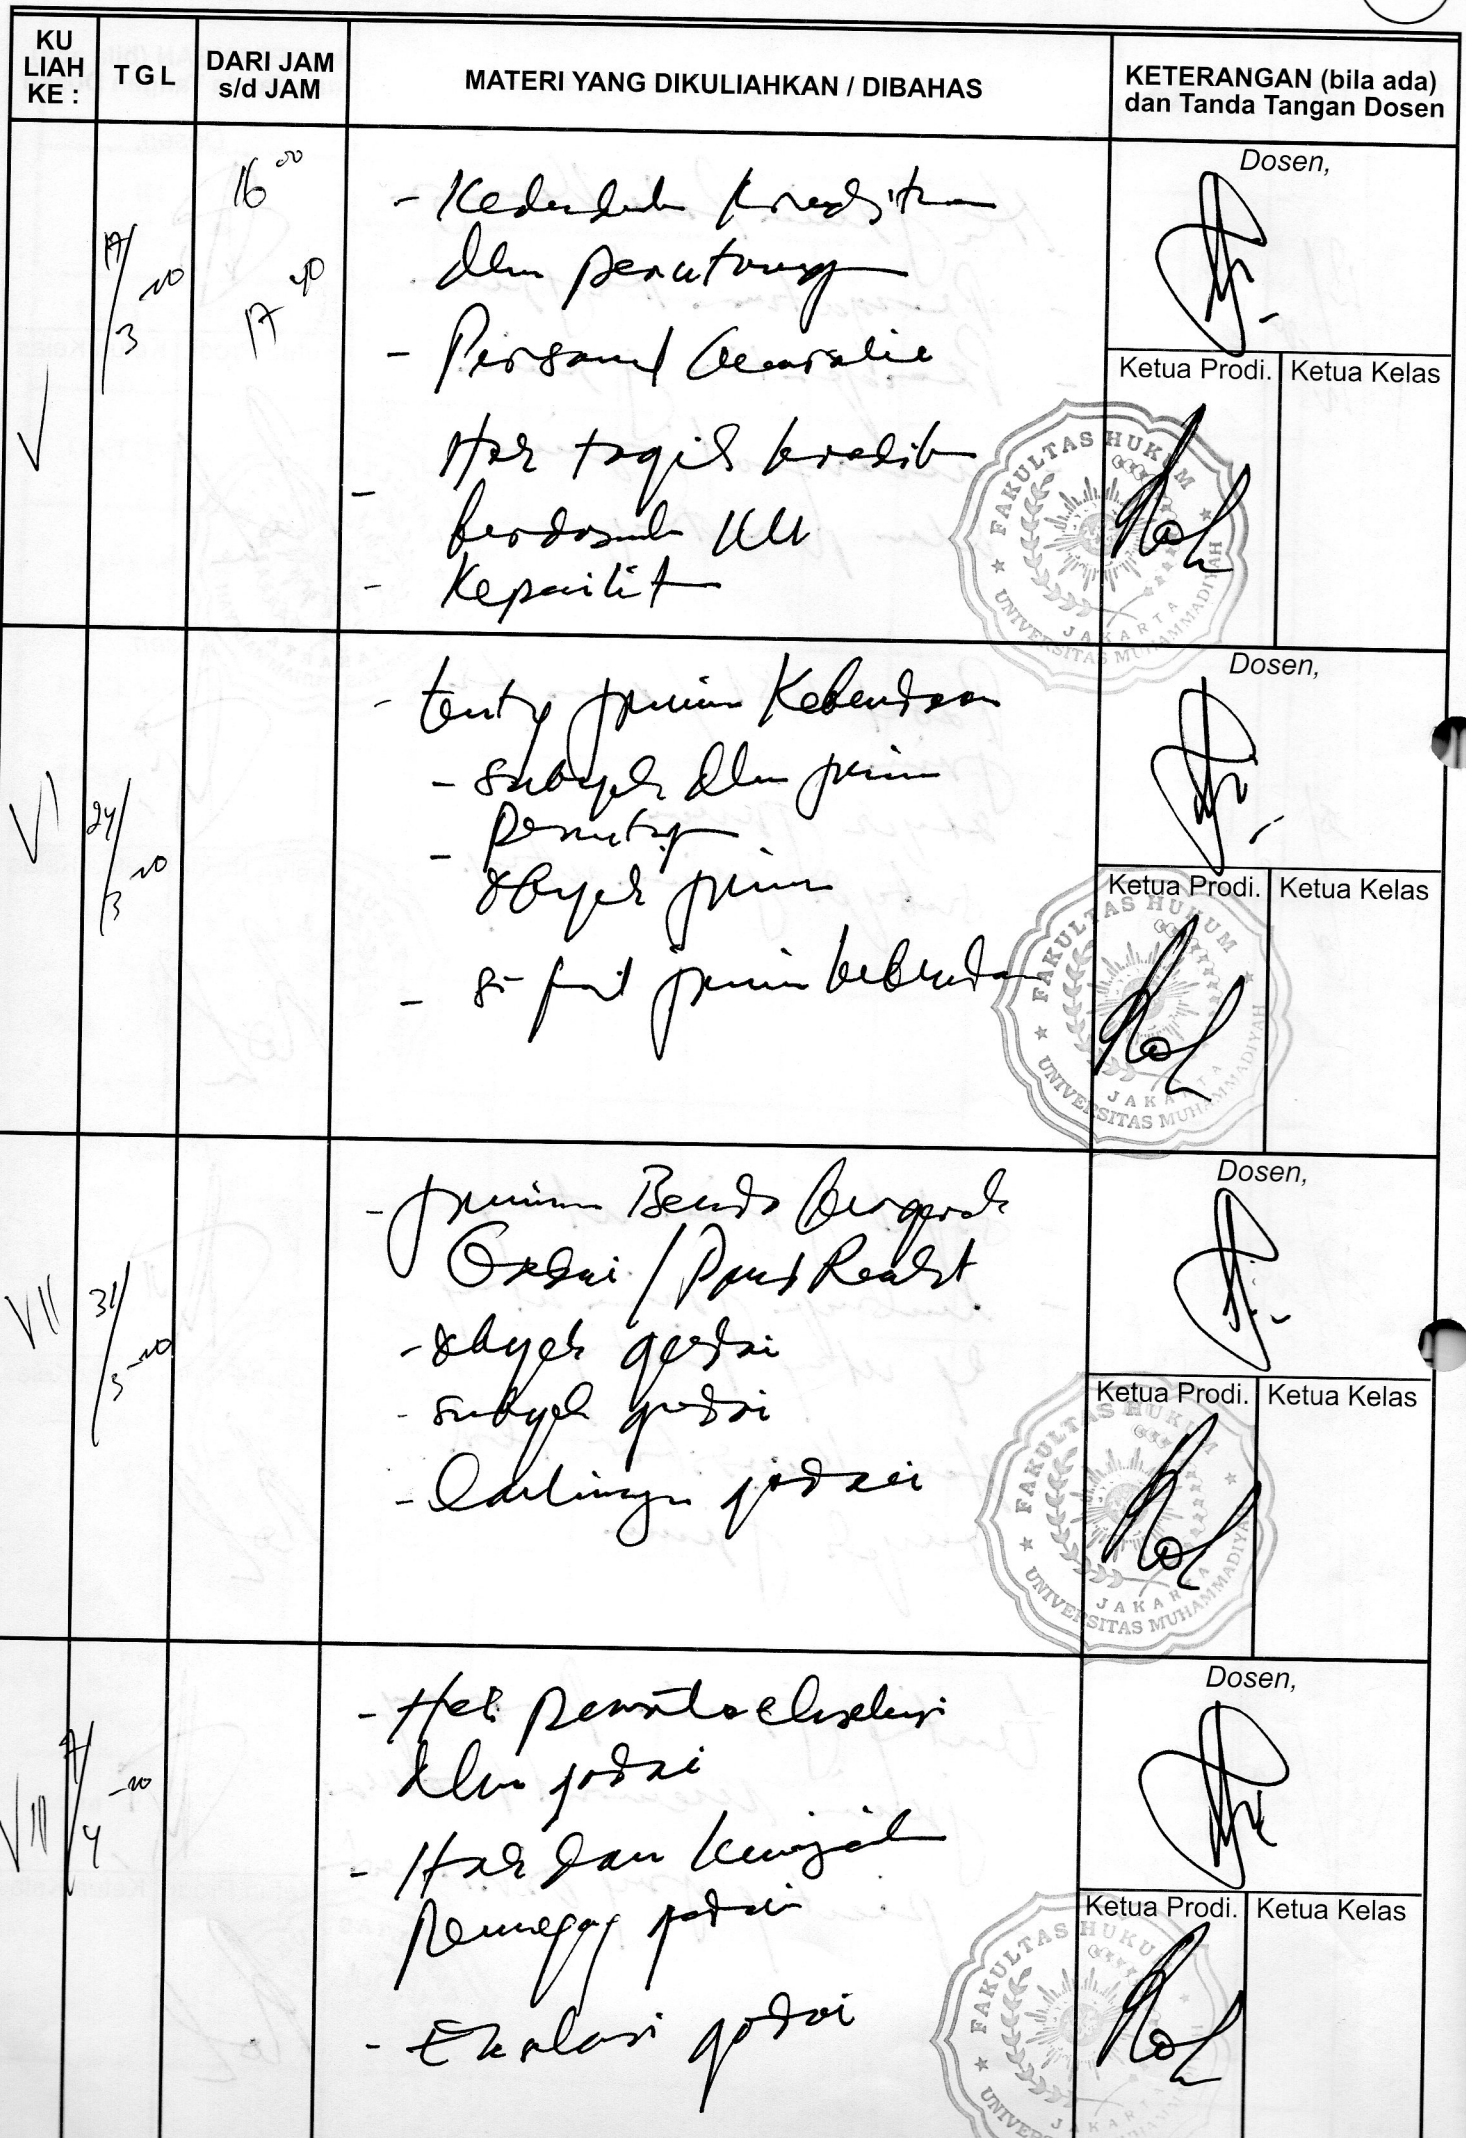 KU LIAH KE :
TGL
DARI JAM s/d JAM
MATERI YANG DIKULIAHKAN / DIBAHAS
KETERANGAN (bila ada) dan Tanda Tangan Dosen
V
17/3-20
16 00
17 40
- Kedudukan Kreditur
dlm penutang
- Personal Guarantie
- Hak tagih kreditur
berdasarkan UU
- Kepailitan
Dosen,
Ketua Prodi.
Ketua Kelas
FAKULTAS HUKUM
UNIVERSITAS MUHAMMADIYAH
JAKARTA
VI
24/3-20
- tentg jaminan Kebendaan
- subyek dlm jaminan
-
obyek jaminan
- sifat jaminan kebendaan
Dosen,
Ketua Prodi.
Ketua Kelas
FAKULTAS HUKUM
UNIVERSITAS MUHAMMADIYAH
JAKARTA
VII
31/3-20
- jaminan Benda bergerak
Gadai /
- obyek gadai
- subyek gadai
- gadai
Dosen,
Ketua Prodi.
Ketua Kelas
FAKULTAS HUKUM
UNIVERSITAS MUHAMMADIYAH
JAKARTA
VIII
7/4-20
- Hak parate eksekusi
dlm gadai
- Hak dan kewajiban
Pemegang gadai
- Eksekusi gadai
Dosen,
Ketua Prodi.
Ketua Kelas
FAKULTAS HUKU
JAKARTA